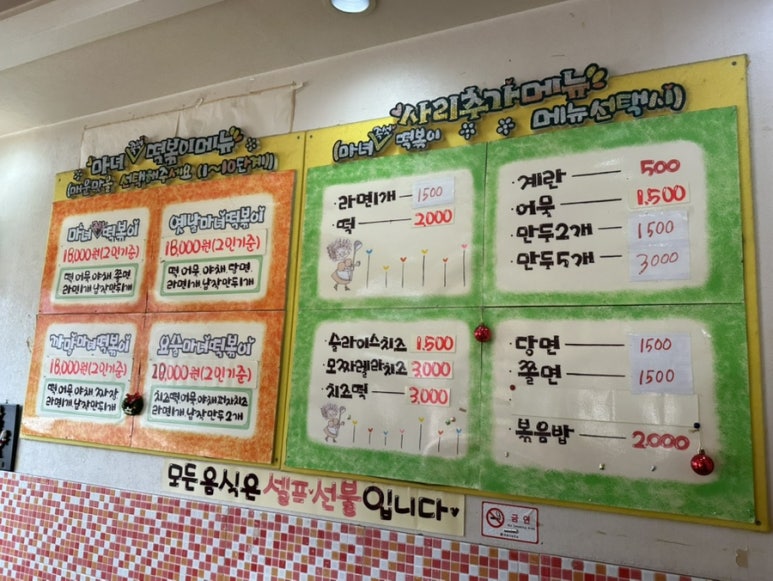 마녀 떡볶이메뉴
(매운맛을 선택해주세요 (1~10단계))
마녀떡볶이
18,000원(2인기준)
떡 어묵 야채 쫄면
라면1개 납작만두1개
옛날마녀떡볶이
18,000원(2인기준)
떡 어묵 야채 당면
라면1개 납작만두1개
까망마녀떡볶이
18,000원(2인기준)
떡 어묵 야채 짜장
라면1개 납작만두1개
요술마녀떡볶이
20,000원(2인기준)
치즈떡 어묵 야채 피자치즈
라면1개 납작만두2개
사리추가메뉴
(마녀 떡볶이 메뉴선택시)
라면1개 1500
떡 2,000
계란 500
어묵 1,500
만두2개 1500
만두5개 3000
슬라이스치즈 1,500
모짜렐라치즈 3,000
치즈떡 3,000
당면 1500
쫄면 1500
볶음밥 2,000
모든음식은 셀프·선불입니다
금연